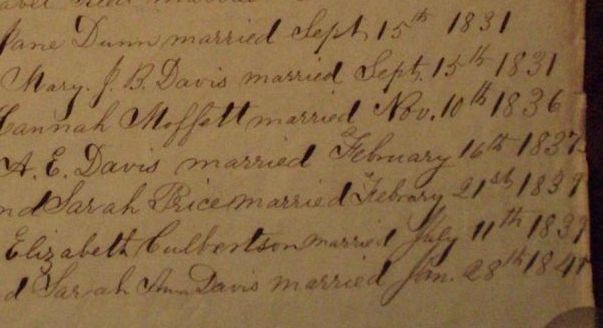 Jane Dunn married Sept. 15th 1831
Mary. J. B. Davis married Sept. 15th 1831
Hannah Moffett married Nov. 10th 1836
A. E. Davis married February 16th 1837
nd Sarah Price married Febrary 21st 1839
Elizabeth Culbertson married July 11th 1839
d Sarah Ann Davis married Jan. 28th